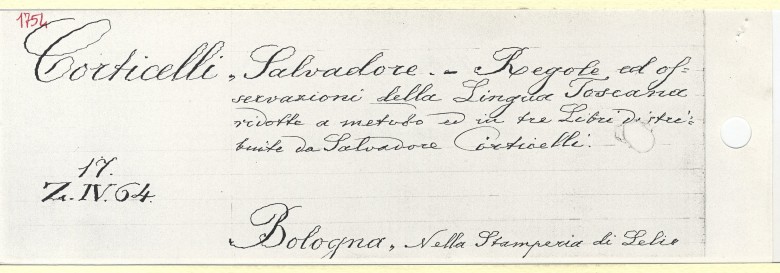 1754
Corticelli, Salvadore. - Regole ed os=
servazioni della Lingua Toscana
ridotte a metodo ed in tre Libri distri=
buite da Salvadore Corticelli.
17.
Z. IV. 64.
Bologna, Nella Stamperia di Lelio